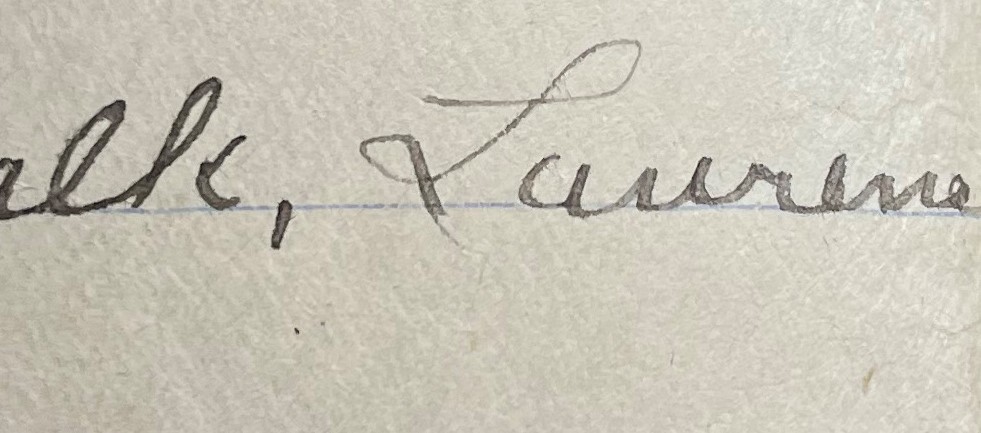 alk, Lauren